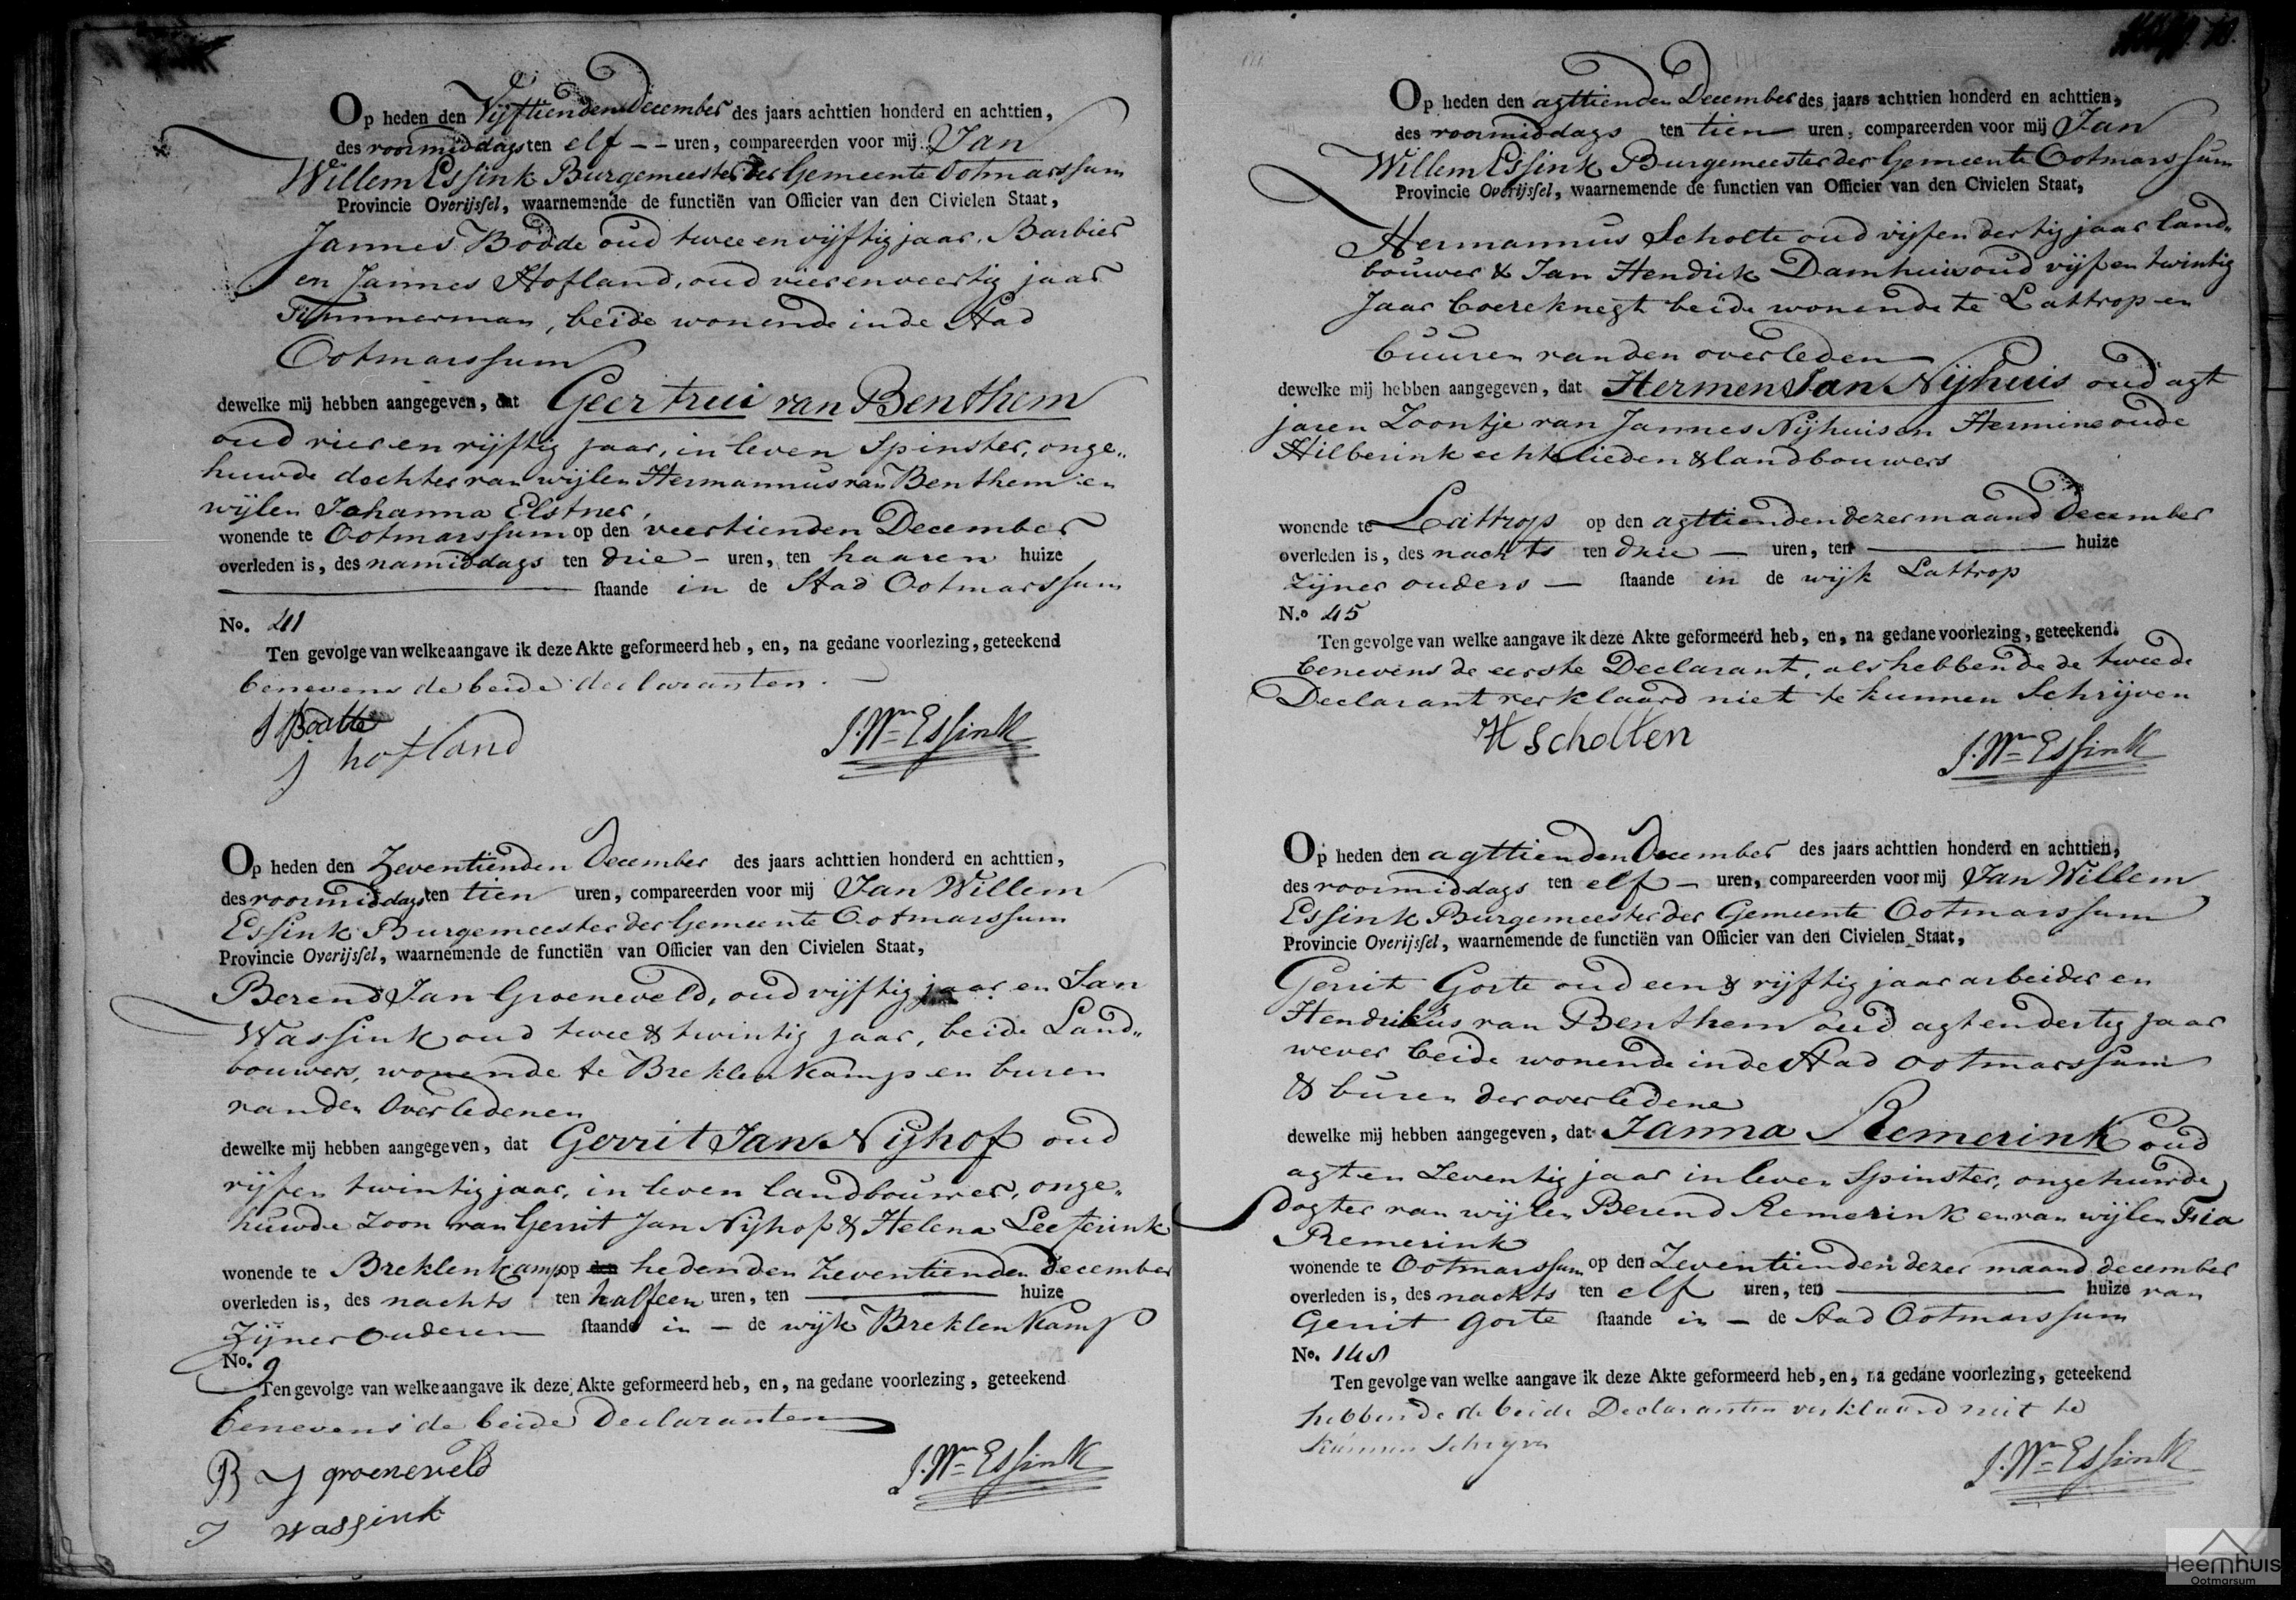 Op heden den Vijftienden December des jaars achttien honderd en achttien,
des voormiddags ten elf -- uren, compareerden voor mij Jan
Willem Essink Burgemeester der Gemeente Ootmarssum
Provincie Overijssel, waarnemende de functiën van Officier van den Civielen Staat,
Jannes Bodde oud twee en vijftig jaar. Barbier
en Jannes Hofland, oud vier en veertig jaar
Timmerman, beide wonende in de Stad
Ootmarssum
dewelke mij hebben aangegeven, dat Geertrui van Benthem
oud vier en vijftig jaar, in leven Spinster, onge„
huwde dochter van wijlen Hermannus van Benthem en
wijlen Johanna Elstner,
wonende te Ootmarssum op den veertienden December
overleden is, des namiddags ten drie – uren, ten haaren huize
staande in de Stad Ootmarssum
No. 41
Ten gevolge van welke aangave ik deze Akte geformeerd heb, en, na gedane voorlezing, geteekend
benevens de beide declaranten.
J Bodde
j hofland
J. Wm Essink
Op heden den Zeventienden December des jaars achttien honderd en achttien,
des voormiddags ten tien uren, compareerden voor mij Jan Willem
Essink Burgemeester der Gemeente Ootmarssum
Provincie Overijssel, waarnemende de functiën van Officier van den Civielen Staat,
Berend Jan Groeneveld, oud vijftig jaar en Jan
Wassink oud twee & twintig jaar, beide Land„
bouwers, wonende te Breklenkamp en buren
van den Overledenen
dewelke mij hebben aangegeven, dat Gerrit Jan Nijhof oud
vijf en twintig jaar, in leven landbouwer, onge„
huwde Zoon van Gerrit Jan Nijhof & Helena Leeferink
wonende te Breklenkamp op den heden den Zeventienden December
overleden is, des nachts ten half een uren, ten huize
Zijner Ouderen staande in – de wijk Breklenkamp
No. 9
Ten gevolge van welke aangave ik deze Akte geformeerd heb, en, na gedane voorlezing, geteekend
benevens de beide Declaranten
B J groeneveld
J wassink
J. Wm Essink
Op heden den agttienden December des jaars achttien honderd en achttien,
des voormiddags ten tien uren, compareerden voor mij Jan
Willem Essink Burgemeester der Gemeente Ootmarssum
Provincie Overijssel, waarnemende de functien van Officier van den Civielen Staat,
Hermannus Scholte oud vijf en dertig jaar land„
bouwer & Jan Hendrik Damhuis oud vijf en twintig
Jaar boereknegt beide wonende te Lattrop en
buuren van den overleden
dewelke mij hebben aangegeven, dat Hermen Jan Nijhuis oud agt
jaren Zoontje van Jannes Nijhuis en Hermine oude
Hilberink echtelieden & landbouwers
wonende te Lattrop op den agttienden dezer maand December
overleden is, des nachts ten drie – uren, ten huize
Zijner ouders – staande in de wijk Lattrop
N.o 45
Ten gevolge van welke aangave ik deze Akte geformeerd heb, en, na gedane voorlezing, geteekend.
benevens de eerste Declarant, als hebbende de tweede
Declarant verklaard niet te kunnen Schrijven
H Scholten
J. Wm Essink
Op heden den agttienden December des jaars achttien honderd en achttien,
des voormiddags ten elf – uren, compareerden voor mij Jan Willem
Essink Burgemeester der Gemeente Ootmarssum
Provincie Overijssel, waarnemende de functiën van Officier van den Civielen Staat,
Gerrit Gorte oud een & vijftig jaar arbeider en
Hendrikus van Benthem oud agt en dertig jaar
wever beide wonende in de Stad Ootmarssum
& buren der overledene
dewelke mij hebben aangegeven, dat Janna Remerink oud
agt en Zeventig jaar in leven Spinster, ongehuwde
dogter van wijlen Berend Remerink en van wijlen Fia
Remerink
wonende te Ootmarssum op den Zeventienden dezer maand december
overleden is, des nachts ten elf uren, ten huize van
Gerrit Gorte staande in – de Stad Ootmarssum
No. 148
Ten gevolge van welke aangave ik deze Akte geformeerd heb, en, na gedane voorlezing, geteekend
hebbende de beide Declaranten verklaard niet te
kunnen Schryven
J. Wm Essink
Heemhuis
Ootmarsum